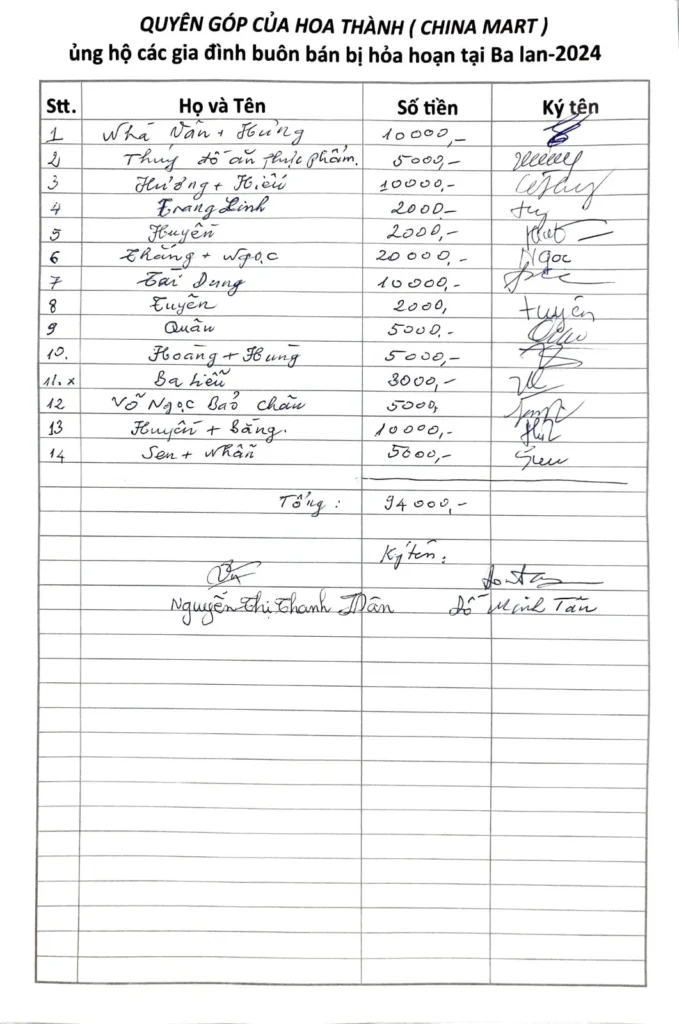 QUYÊN GÓP CỦA HOA THÀNH ( CHINA MART )
ủng hộ các gia đình buôn bán bị hỏa hoạn tại Ba lan-2024
Stt. Họ và Tên Số tiền Ký tên
1 Nhà Vân + Hưng 10000,-
2 Thúy đồ ăn thực phẩm. 5000,-
3 Hương + Hiếu 10000,-
4 Trang Linh 2000-
5 Huyền 2000,-
6 Thắng + Ngọc 20000,- Ngọc
7 Tài Dung 10000,-
8 Tuyên 2000, tuyên
9 Quân 5000.-
10. Hoàng + Hung 5000,-
11. x Ba 3000,-
12 Võ Ngọc Bảo Châu 5000,
13 Huyền + Băng. 10000,-
14 Sen + Nhẫn 5000,- Sen
Tổng : 94000,-
Ký tên :
Nguyễn Thị Thanh Dân Đỗ Minh Tân